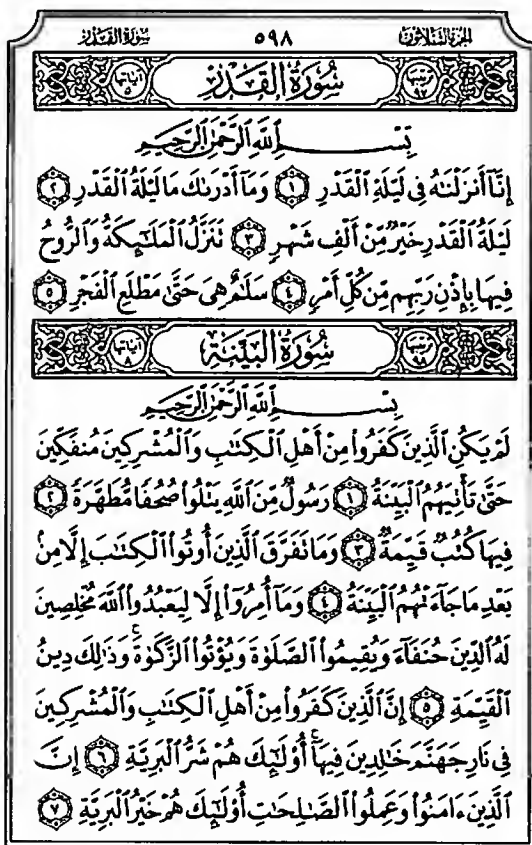 سُورَةُ القَدۡرِ ٥٩٨ الجزء الثلاثون
ترتيبها ٩٧ سُورَةُ القَدۡرِ آياتها ٥
بِسۡمِ ٱللَّهِ ٱلرَّحۡمَٰنِ ٱلرَّحِيمِ
إِنَّآ أَنزَلۡنَٰهُ فِي لَيۡلَةِ ٱلۡقَدۡرِ ١ وَمَآ أَدۡرَىٰكَ مَا لَيۡلَةُ ٱلۡقَدۡرِ ٢
لَيۡلَةُ ٱلۡقَدۡرِ خَيۡرٞ مِّنۡ أَلۡفِ شَهۡرٖ ٣ تَنَزَّلُ ٱلۡمَلَٰٓئِكَةُ وَٱلرُّوحُ
فِيهَا بِإِذۡنِ رَبِّهِم مِّن كُلِّ أَمۡرٖ ٤ سَلَٰمٌ هِيَ حَتَّىٰ مَطۡلَعِ ٱلۡفَجۡرِ ٥
ترتيبها ٩٨ سُورَةُ البَيِّنَةِ آياتها ٨
بِسۡمِ ٱللَّهِ ٱلرَّحۡمَٰنِ ٱلرَّحِيمِ
لَمۡ يَكُنِ ٱلَّذِينَ كَفَرُواْ مِنۡ أَهۡلِ ٱلۡكِتَٰبِ وَٱلۡمُشۡرِكِينَ مُنفَكِّينَ
حَتَّىٰ تَأۡتِيَهُمُ ٱلۡبَيِّنَةُ ١ رَسُولٞ مِّنَ ٱللَّهِ يَتۡلُواْ صُحُفٗا مُّطَهَّرَةٗ ٢
فِيهَا كُتُبٞ قَيِّمَةٞ ٣ وَمَا تَفَرَّقَ ٱلَّذِينَ أُوتُواْ ٱلۡكِتَٰبَ إِلَّا مِنۢ
بَعۡدِ مَا جَآءَتۡهُمُ ٱلۡبَيِّنَةُ ٤ وَمَآ أُمِرُوٓاْ إِلَّا لِيَعۡبُدُواْ ٱللَّهَ مُخۡلِصِينَ
لَهُ ٱلدِّينَ حُنَفَآءَ وَيُقِيمُواْ ٱلصَّلَوٰةَ وَيُؤۡتُواْ ٱلزَّكَوٰةَۚ وَذَٰلِكَ دِينُ
ٱلۡقَيِّمَةِ ٥ إِنَّ ٱلَّذِينَ كَفَرُواْ مِنۡ أَهۡلِ ٱلۡكِتَٰبِ وَٱلۡمُشۡرِكِينَ
فِي نَارِ جَهَنَّمَ خَٰلِدِينَ فِيهَآۚ أُوْلَٰٓئِكَ هُمۡ شَرُّ ٱلۡبَرِيَّةِ ٦ إِنَّ
ٱلَّذِينَ ءَامَنُواْ وَعَمِلُواْ ٱلصَّٰلِحَٰتِ أُوْلَٰٓئِكَ هُمۡ خَيۡرُ ٱلۡبَرِيَّةِ ٧